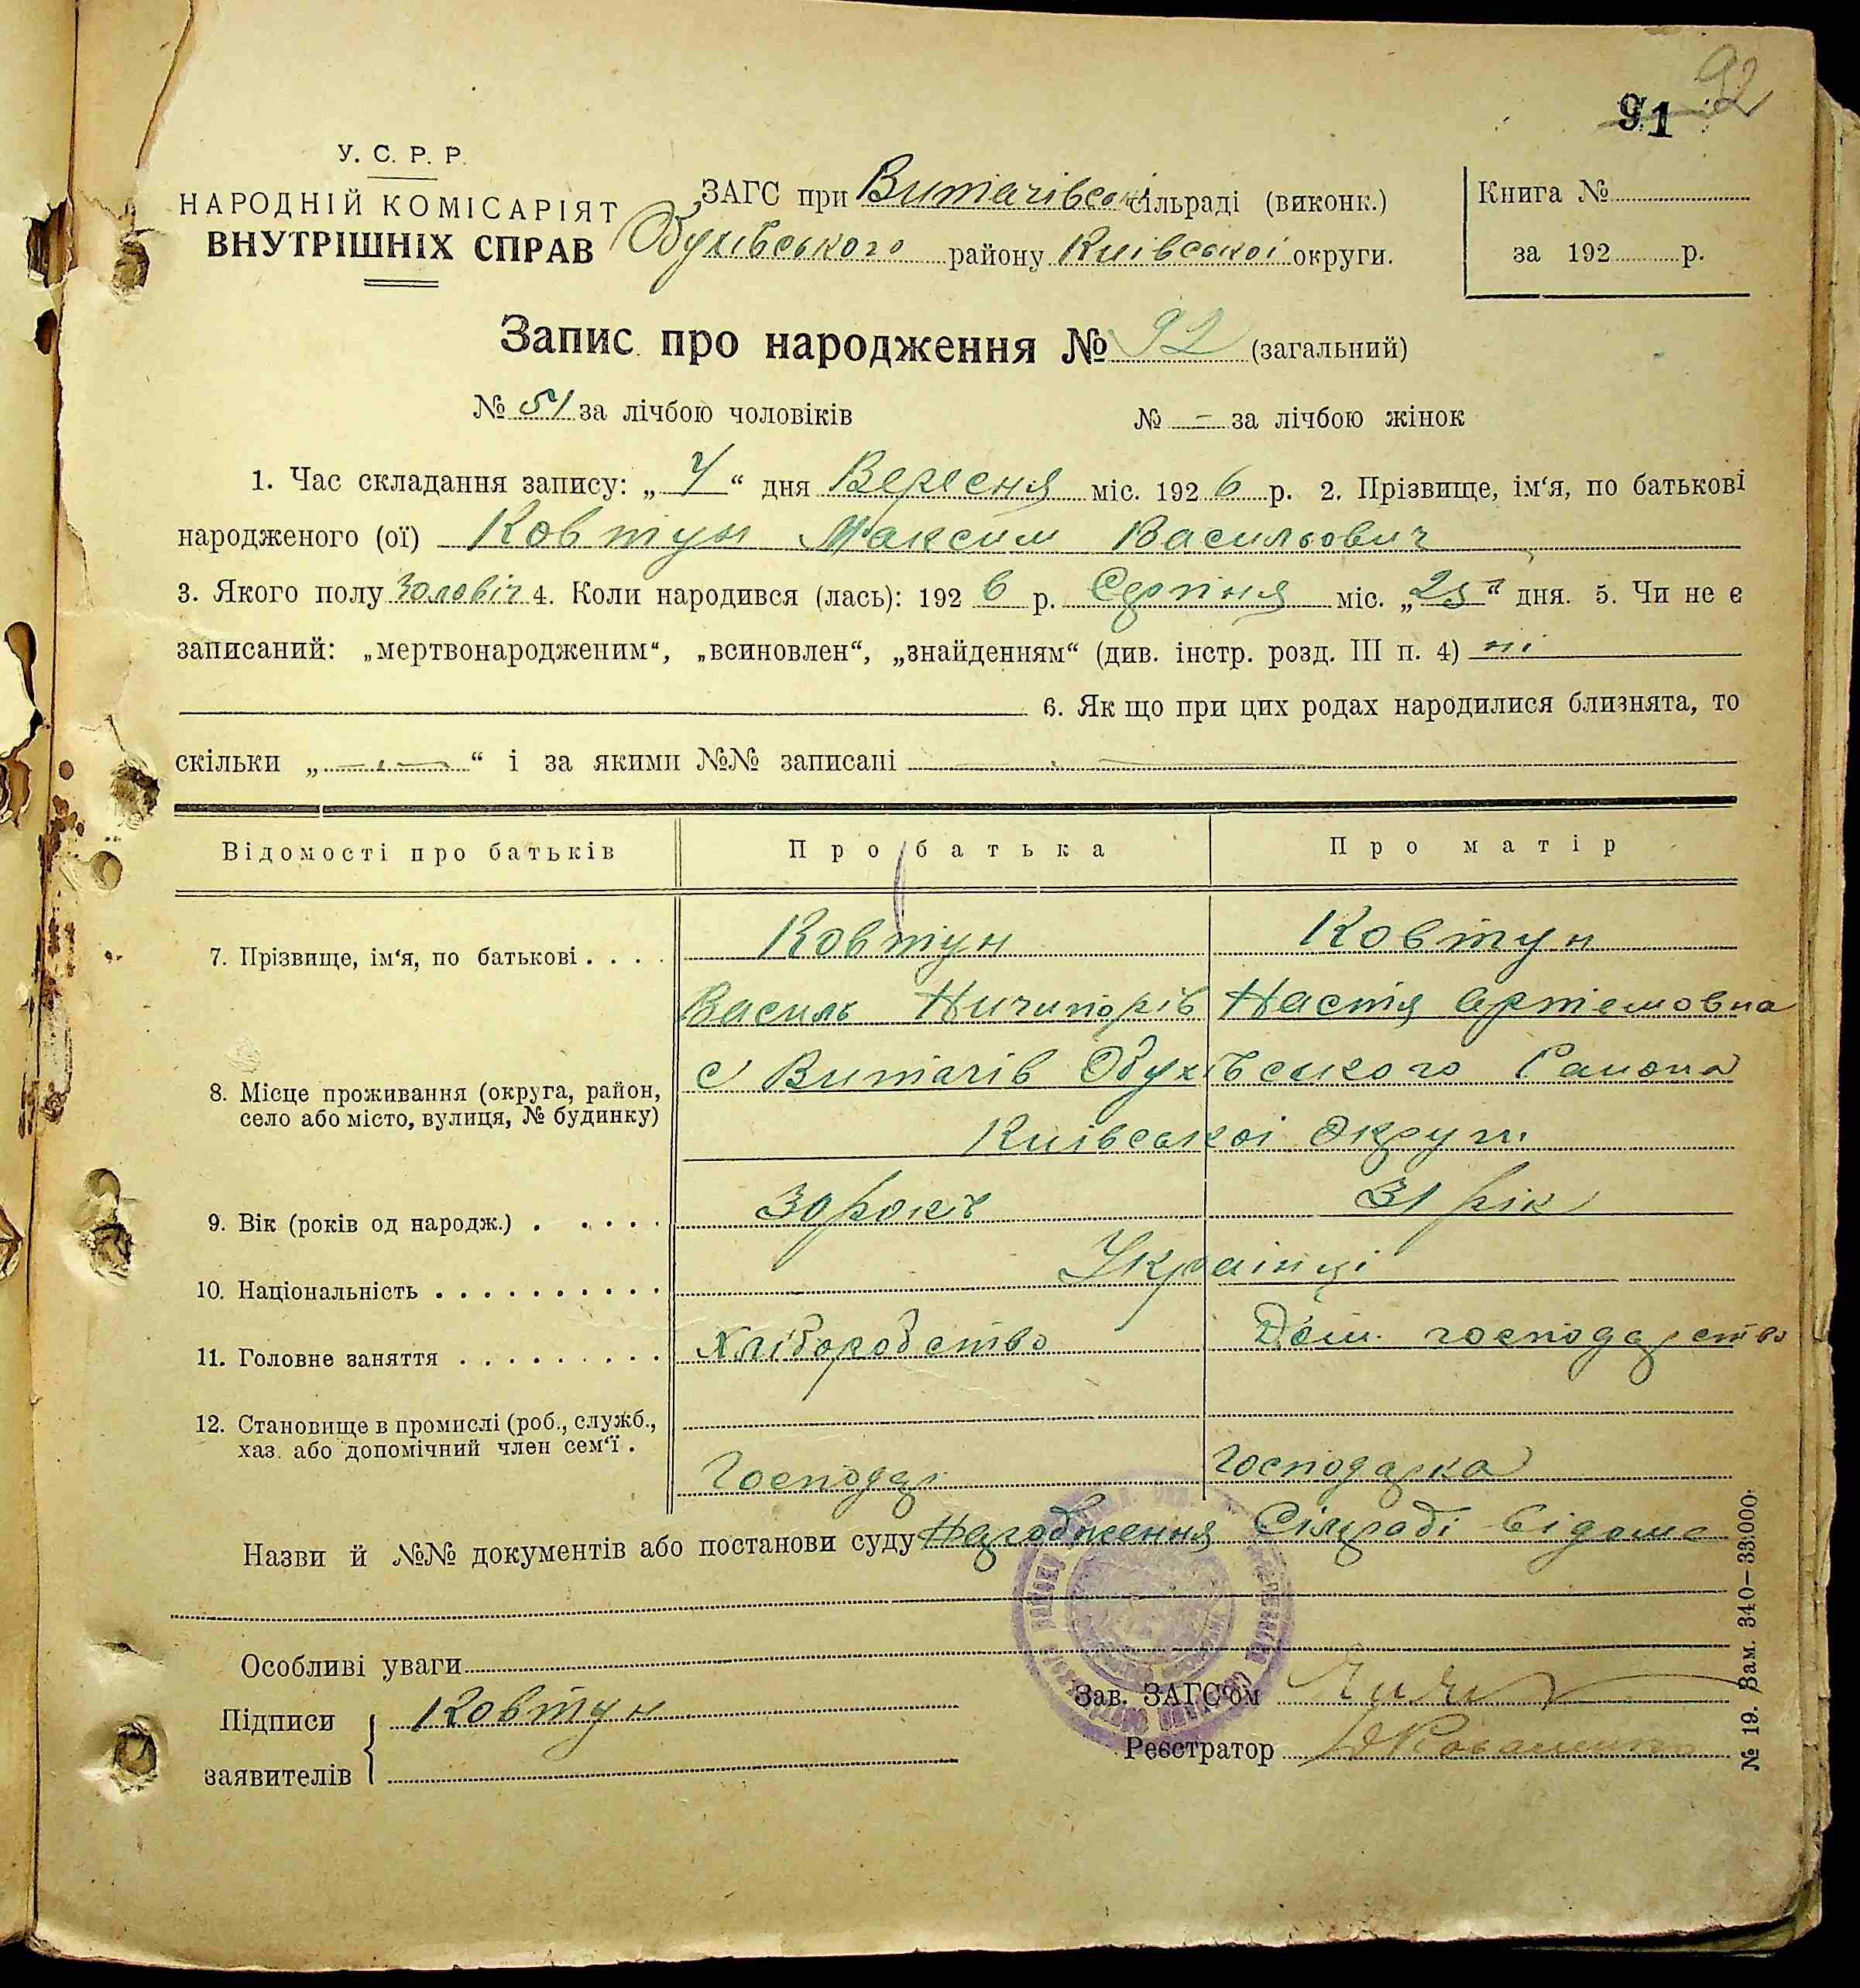 92
91
У. С. Р. Р.
НАРОДНІЙ КОМІСАРІЯТ
ВНУТРІШНІХ СПРАВ
ЗАГС при Витачівській сільраді (виконк.)
Обухівського району Київської округи.
Книга №
за 192 р.
Запис про народження № 92 (загальний)
№ 51 за лічбою чоловіків № – за лічбою жінок
1. Час складання запису: „ “ дня Вересня міс. 1926 р. 2. Прізвище, ім‘я, по батькові
народженого (ої) Ковтун Максим Васильович
3. Якого полу чоловіч 4. Коли народився (лась): 1926 р. Серпня міс. „ “ дня. 5. Чи не є
записаний: „мертвонародженим“, „всиновлен“, „знайденням“ (див. інстр. розд. III п. 4) ні
6. Як що при цих родах народилися близнята, то
скільки „ “ і за якими №№ записані
Відомості про батьків Про батька Про матір
7. Прізвище, ім‘я, по батькові . . . . Ковтун Ковтун
Василь Ничипорів Настя Артемовна
8. Місце проживання (округа, район, село або місто, вулиця, № будинку) с Витачів Обухівського Района
Київської Округи
9. Вік (років од народж.) . . . . . 30 років 31 рік
10. Національність . . . . . . . . . . Українці
11. Головне заняття . . . . . . . . . Хліборобство Дом. господарство
12. Становище в промислі (роб., служб.,
хаз. або допомічний член сем‘ї .
Господар Господарка
Назви й №№ документів або постанови суду Народження Сілраді відоме
Особливі уваги
Підписи Ковтун
заявителів
Зав. ЗАГС‘ом
Реєстратор
№ 19. Зам. 340–33.000.